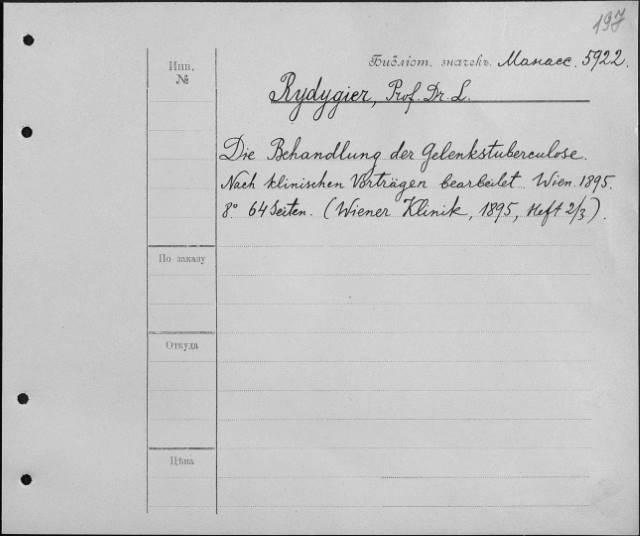 197
Библіот. значекъ. Манасс. 5922.
Инв.
№
Rydygier, Prof. Dr. L.
Die Behandlung der Gelenkstuberculose.
Nach klinischen Vorträgen bearbeitet. Wien. 1895.
8° 64 Seiten. (Wiener Klinik, 1895, Heft 2/3).
По заказу
Откуда
Цѣна